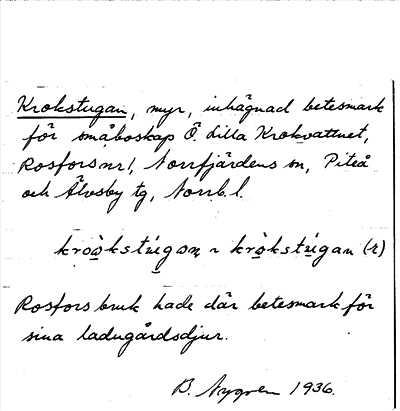 Krokstugan, myr, inhägnad betesmark
för småboskap Ö. Lilla Krokvattnet,
Rosfors nr 1, Norrfjärdens sn, Piteå
och Älvsby tg, Norrb. l.
kròòkstùgan ~ kròkstùgan (-r)
Rosfors bruk hade där betesmark för
sina ladugårdsdjur.
B. Nygren 1936.